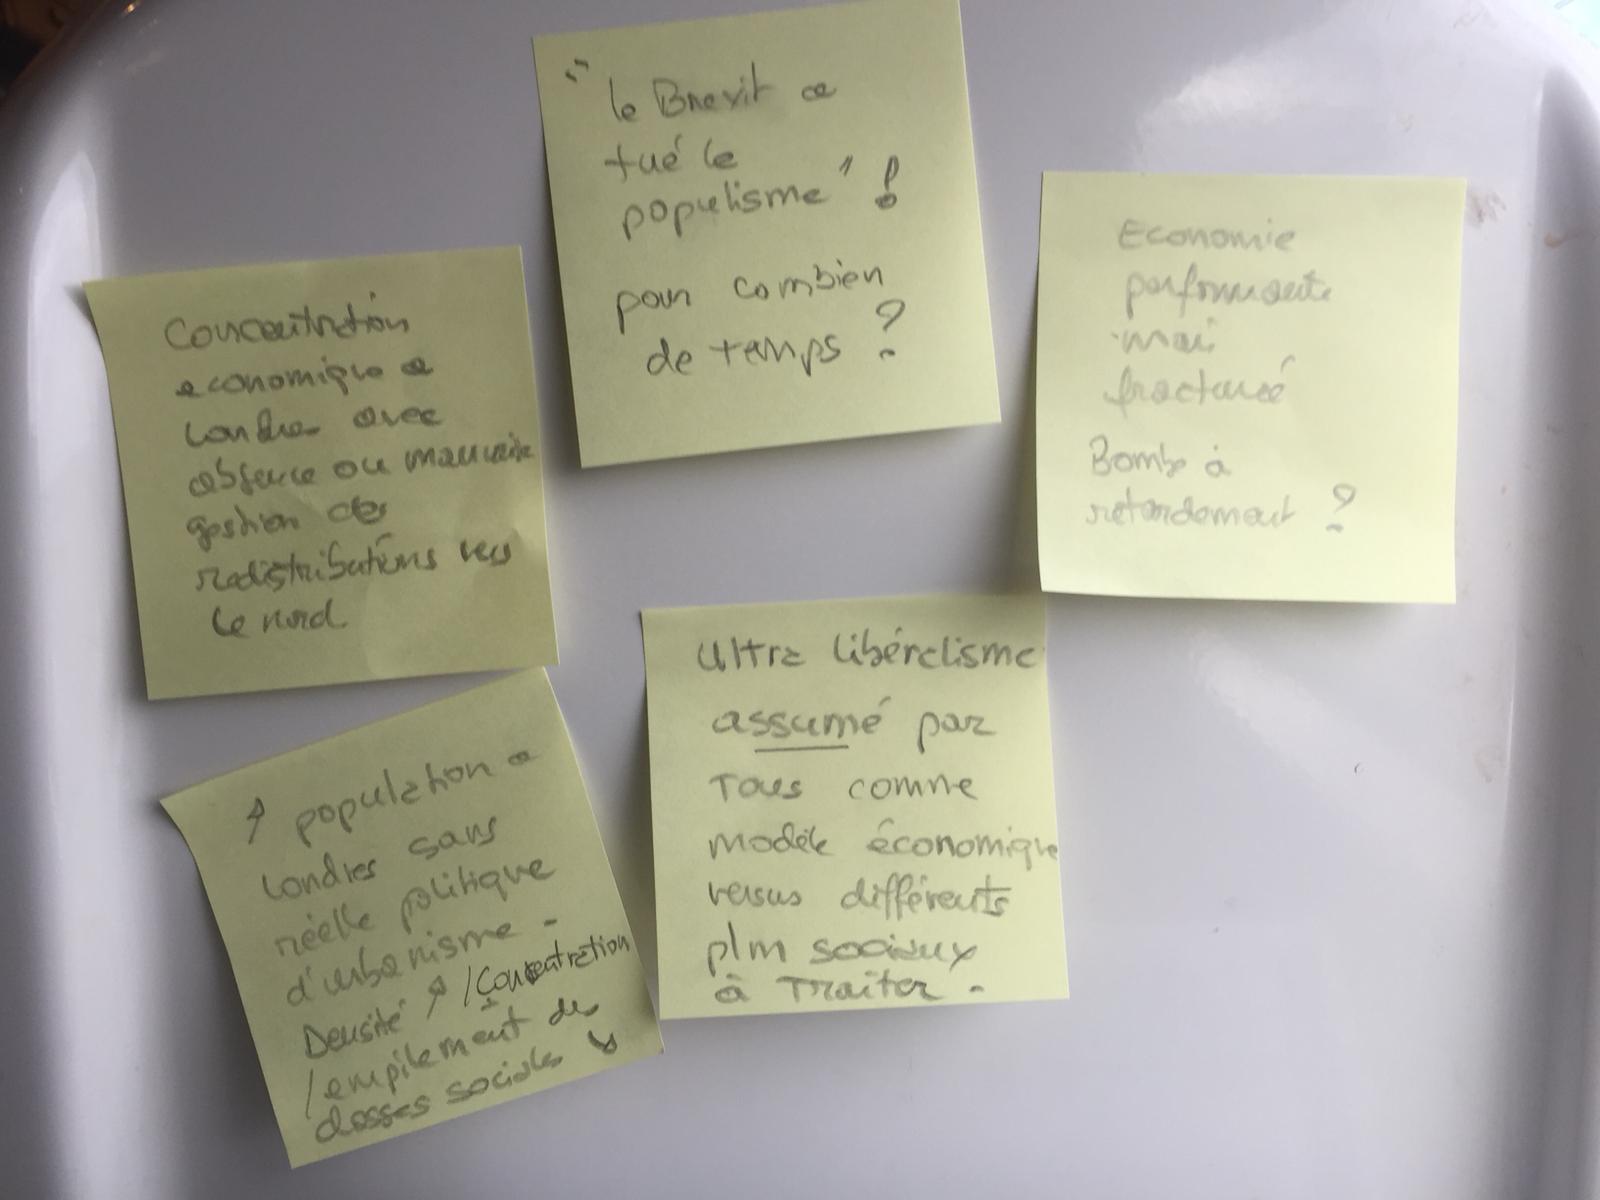 "le Brexit a
tué le
populisme" !
pour combien
de temps ?
Economie
performante
mais
fracturé
Bombe à
retardement ?
Concentration
economique a
Londres avec
absence ou mauvaise
gestion des
redistributions vers
le nord
Ultra libéralisme
assumé par
Tous comme
modèle économique
versus différents
plm sociaux
à Traiter -
↗ population a
Londres sans
réelle politique
d'urbanisme -
Densité ↗ / Concentration
/ empilement des
classes sociales ↘